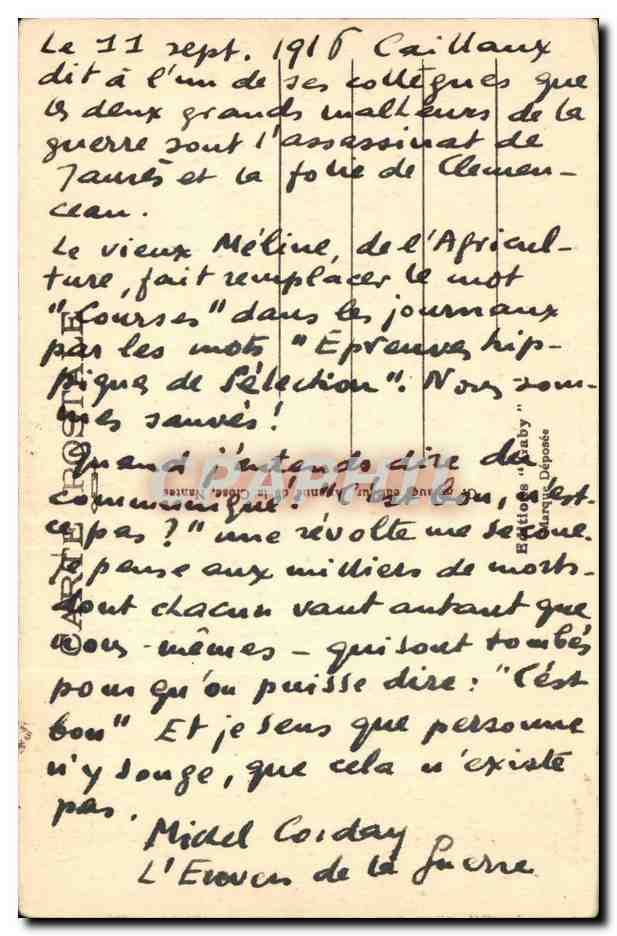 Le 11 sept. 1916 Caillaux
dit à l'un de ses collègues que
les deux grands malheurs de la
guerre sont l'assassinat de
Jaurès et la folie de Clemen-
ceau.
Le vieux Méline, de l'Agricul-
ture, fait remplacer le mot
"Courses" dans les journaux
par les mots "Epreuves hip-
piques de Sélection". Nous som-
mes sauvés!
Quand j'entends dire du
communiqué: "C'est bon, n'est-
ce pas?" une révolte me secoue.
Je pense aux milliers de morts-
dont chacun vaut autant que
nous-mêmes - qui sont tombés
pour qu'on puisse dire: "C'est
bon" Et je sens que personne
n'y songe, que cela n'existe
pas.
Michel Corday
L'Envers de la Guerre
CARTE POSTALE
Editions "Gaby"
Marque Déposée
Nantes
CPAPHIL